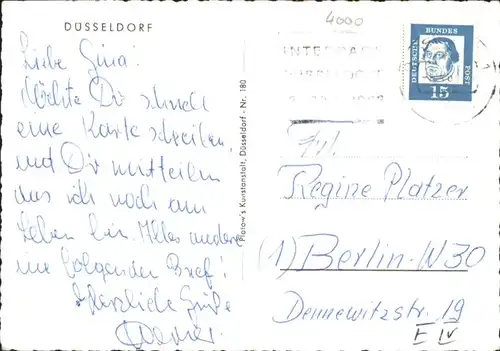 DÜSSELDORF
Liebe Gina!
Möchte Dir schnell
eine Karte schreiben,
und Dir mitteilen
das ich noch am
Leben bin. Alles andere
im folgenden Brief!
Herzliche Grüße
Platow's Kunstanstalt, Düsseldorf - Nr. 180
4000
INTERPACK
DÜSSELDORF
DEUTSCHE BUNDESPOST
15
Frl.
Regine Platzer
(1) Berlin-W30
Dennewitzstr. 19
IV